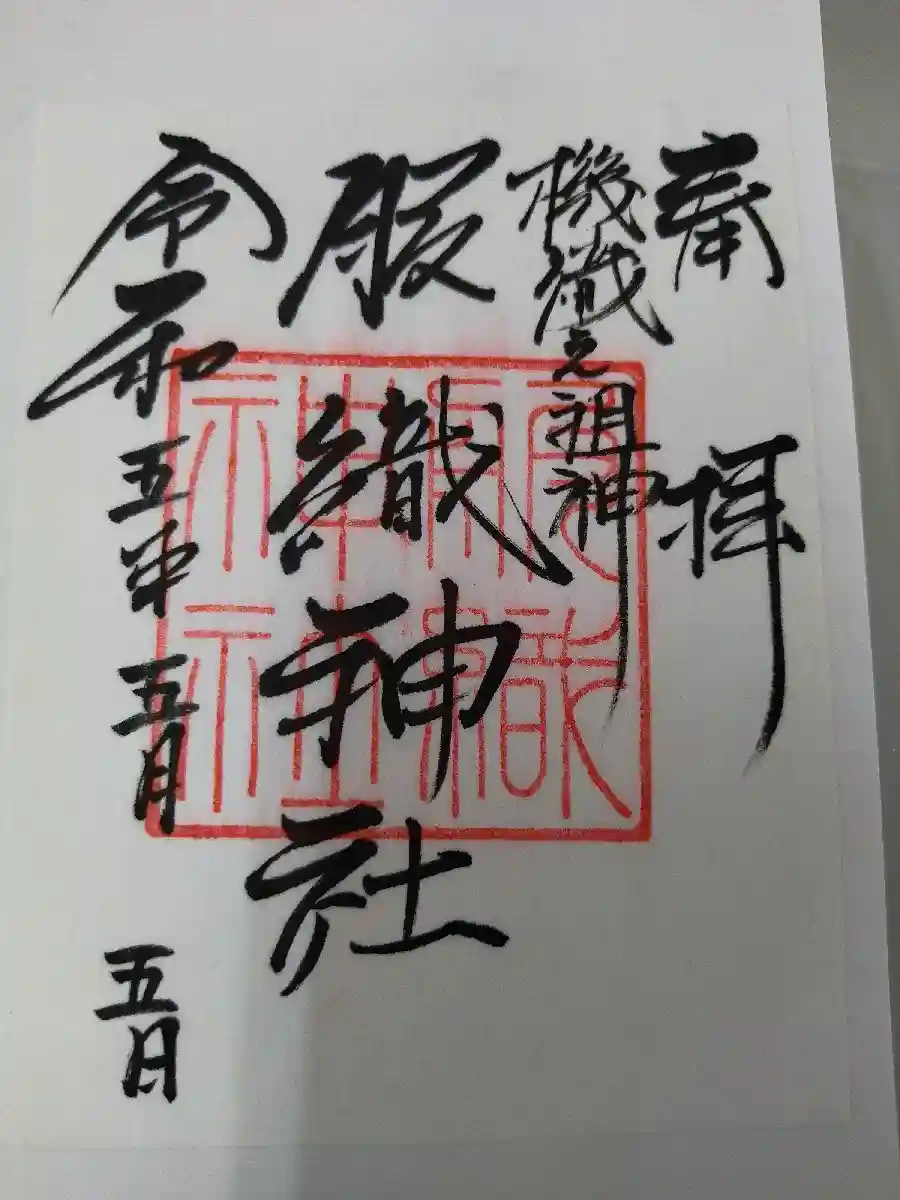 奉拝
機織之祖神
服織神社
令和五年五月五日
服織
神社